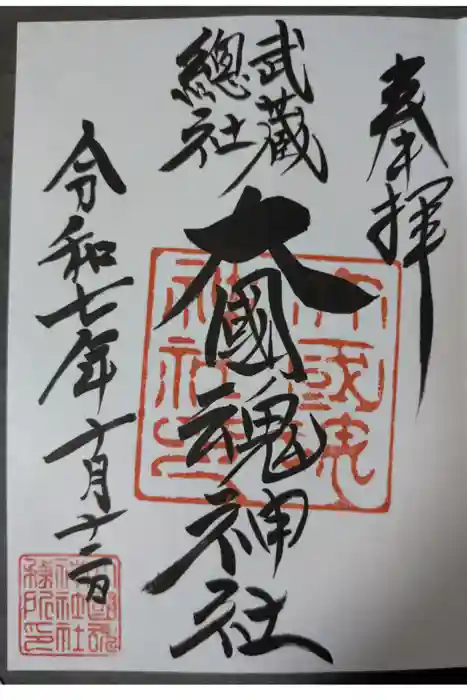 奉拝
武藏
總社
大國魂神社
令和七年十月十二日
大國魂
神社印
大國魂
神社社
務所印